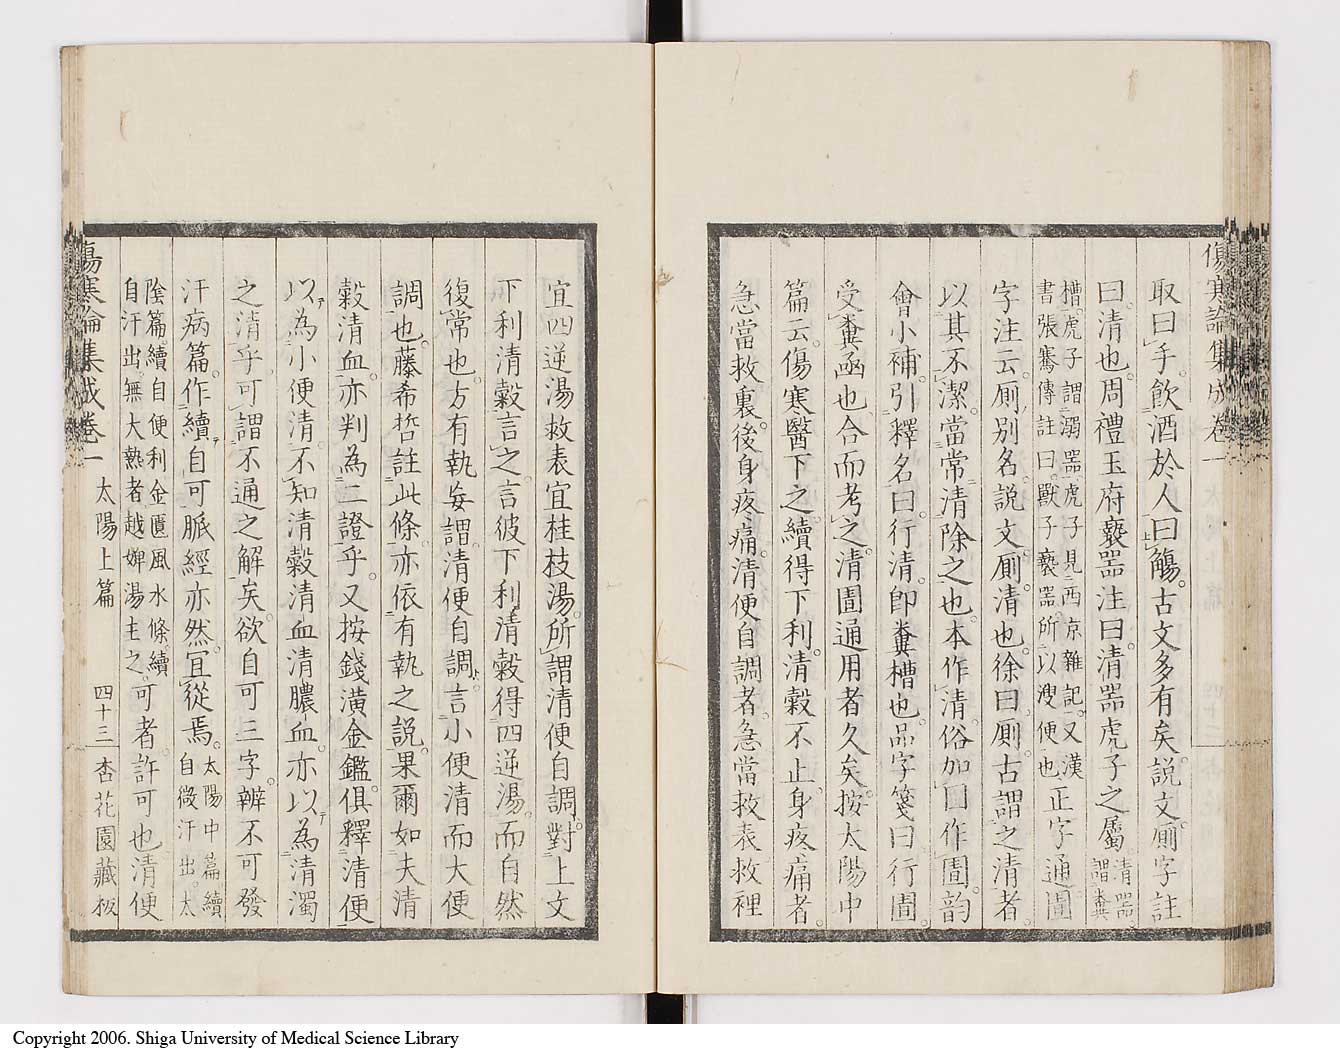 傷寒論集成卷一
取曰手飲酒於人曰觴古文多有矣說文廁字註
曰清也周禮玉府褻器注曰清器虎子之屬清器謂糞
槽虎子謂溺器虎子見西京雜記又漢書張騫傳註曰獸子褻器所以溲便也正字通圊
字注云廁別名說文廁清也徐曰廁古謂之清者
以其不潔當常清除之也本作清俗加囗作圊韵
會小補引釋名曰行清即糞槽也品字箋曰行圊
受糞函也合而考之清圊通用者久矣按太陽中
篇云傷寒醫下之續得下利清穀不止身疼痛者
急當救裏後身疼痛清便自調者急當救表救裡
宜四逆湯救表宜桂枝湯所謂清便自調對上文
下利清穀言之言彼下利清穀得四逆湯而自然
復常也方有執妄謂清便自調言小便清而大便
調也藤希哲註此條亦依有執之說果爾如夫清
穀清血亦判為二證乎又按錢潢金鑑俱釋清便
以為小便清不知清穀清血清膿血亦以為清濁
之清乎可謂不通之解矣欲自可三字辨不可發
汗病篇作續自可脈經亦然宜從焉太陽中篇續自微汗出太
陰篇續自便利金匱風水條續自汗出無大熱者越婢湯主之可者許可也清便
傷寒論集成卷一 太陽上篇 四十三 杏花園藏板
Copyright 2006. Shiga University of Medical Science Library